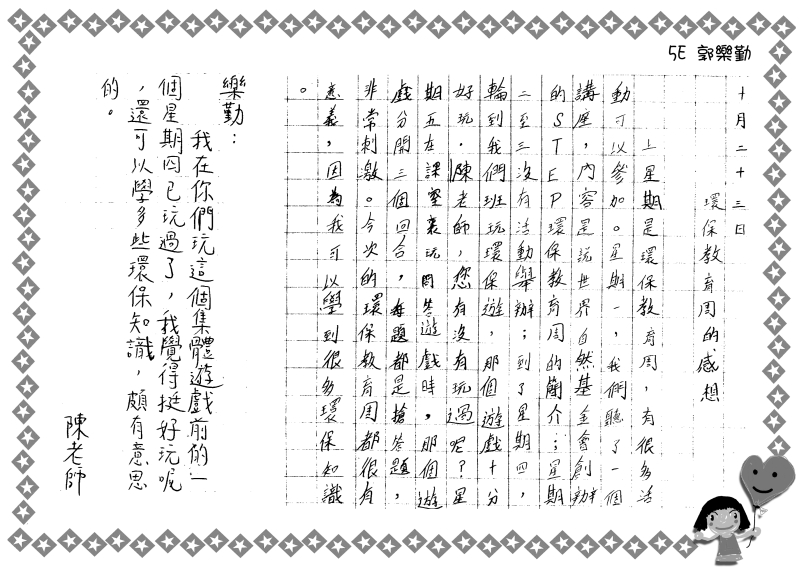 5E 郭樂勤
十月二十三日
環保教育周的感想
上星期是環保教育周，有很多活
動可以參加。星期一，我們聽了一個
講座，內容是說世界自然基金會創辦
的STEP環保教育周的簡介；星期
二至三沒有活動舉辦；到了星期四，
輪到我們班玩環保遊，那個遊戲十分
好玩。陳老師，您有沒有玩過呢？星
期五在課室裏玩問答遊戲時，那個遊
戲分開三個回合，每題都是搶答題，
非常刺激。今次的環保教育周都很有
意義，因為我可以學到很多環保知識
。
樂勤：
我在你們玩這個集體遊戲前的一
個星期四已玩過了，我覺得挺好玩呢
，還可以學多些環保知識，頗有意思
的。
陳老師